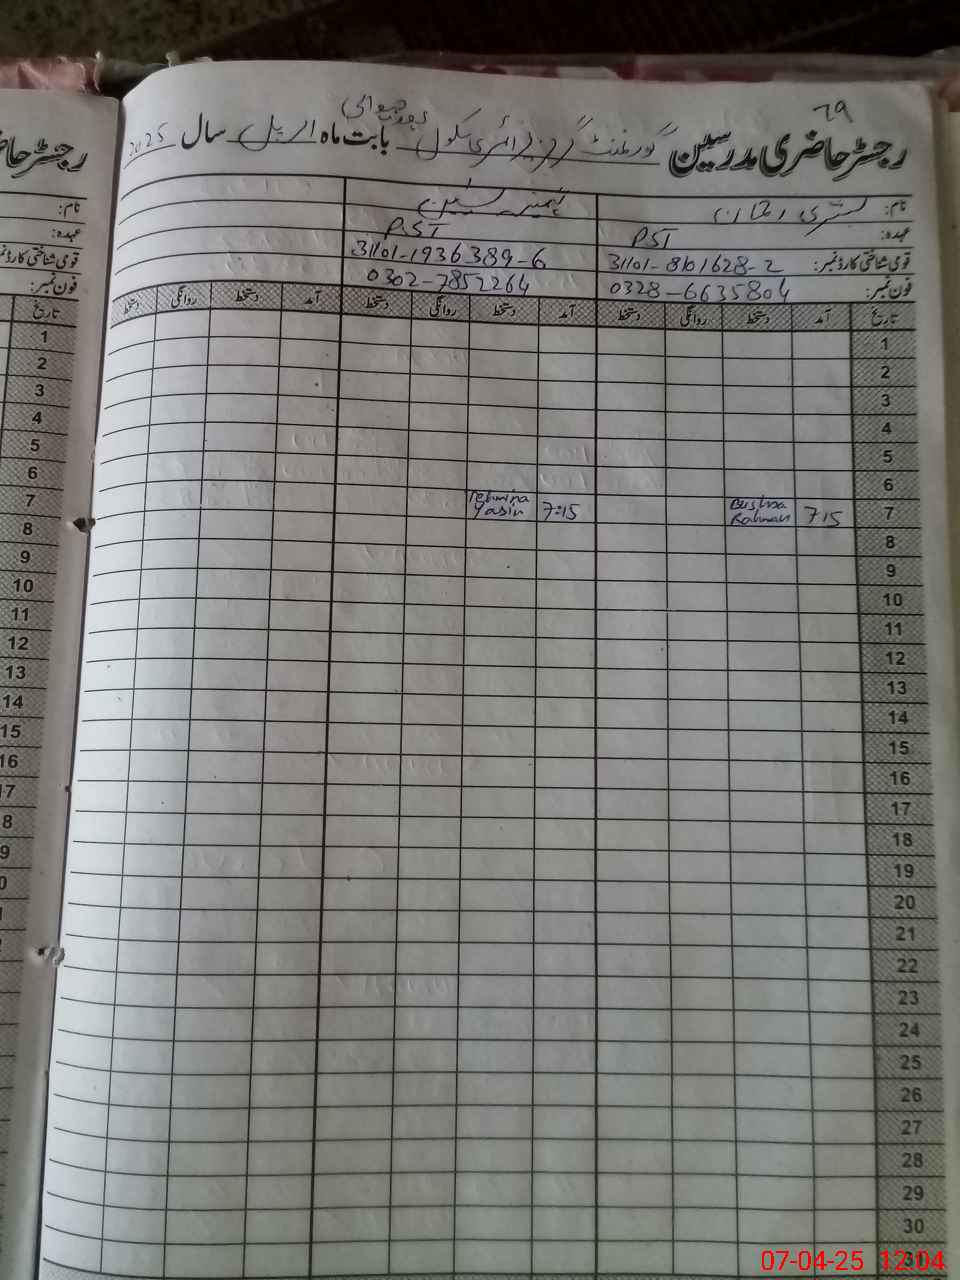 69
رجسٹر حاضری مدرسین گورنمنٹ گرلز پرائمری سکول بابت ماہ اپریل سال 2025
نام: بشریٰ رحمان
عہدہ: PST PST
قومی شناختی کارڈ نمبر: 31101-8101628-2 31101-1936389-6
فون نمبر: 0328-6635804 0302-7852264
تاریخ آمد دستخط روانگی دستخط آمد دستخط روانگی دستخط آمد دستخط روانگی دستخط
1
2
3
4
5
6
7 7:15 Bushra Rahman 7:15 Tehmina Yasin
8
9
10
11
12
13
14
15
16
17
18
19
20
21
22
23
24
25
26
27
28
29
30
31
رجسٹر حا
نام:
عہدہ:
قومی شناختی کارڈ نمبر
فون نمبر:
تاریخ
1
2
3
4
5
6
7
8
9
10
11
12
13
14
15
16
17
8
9
0
07-04-25 12:04